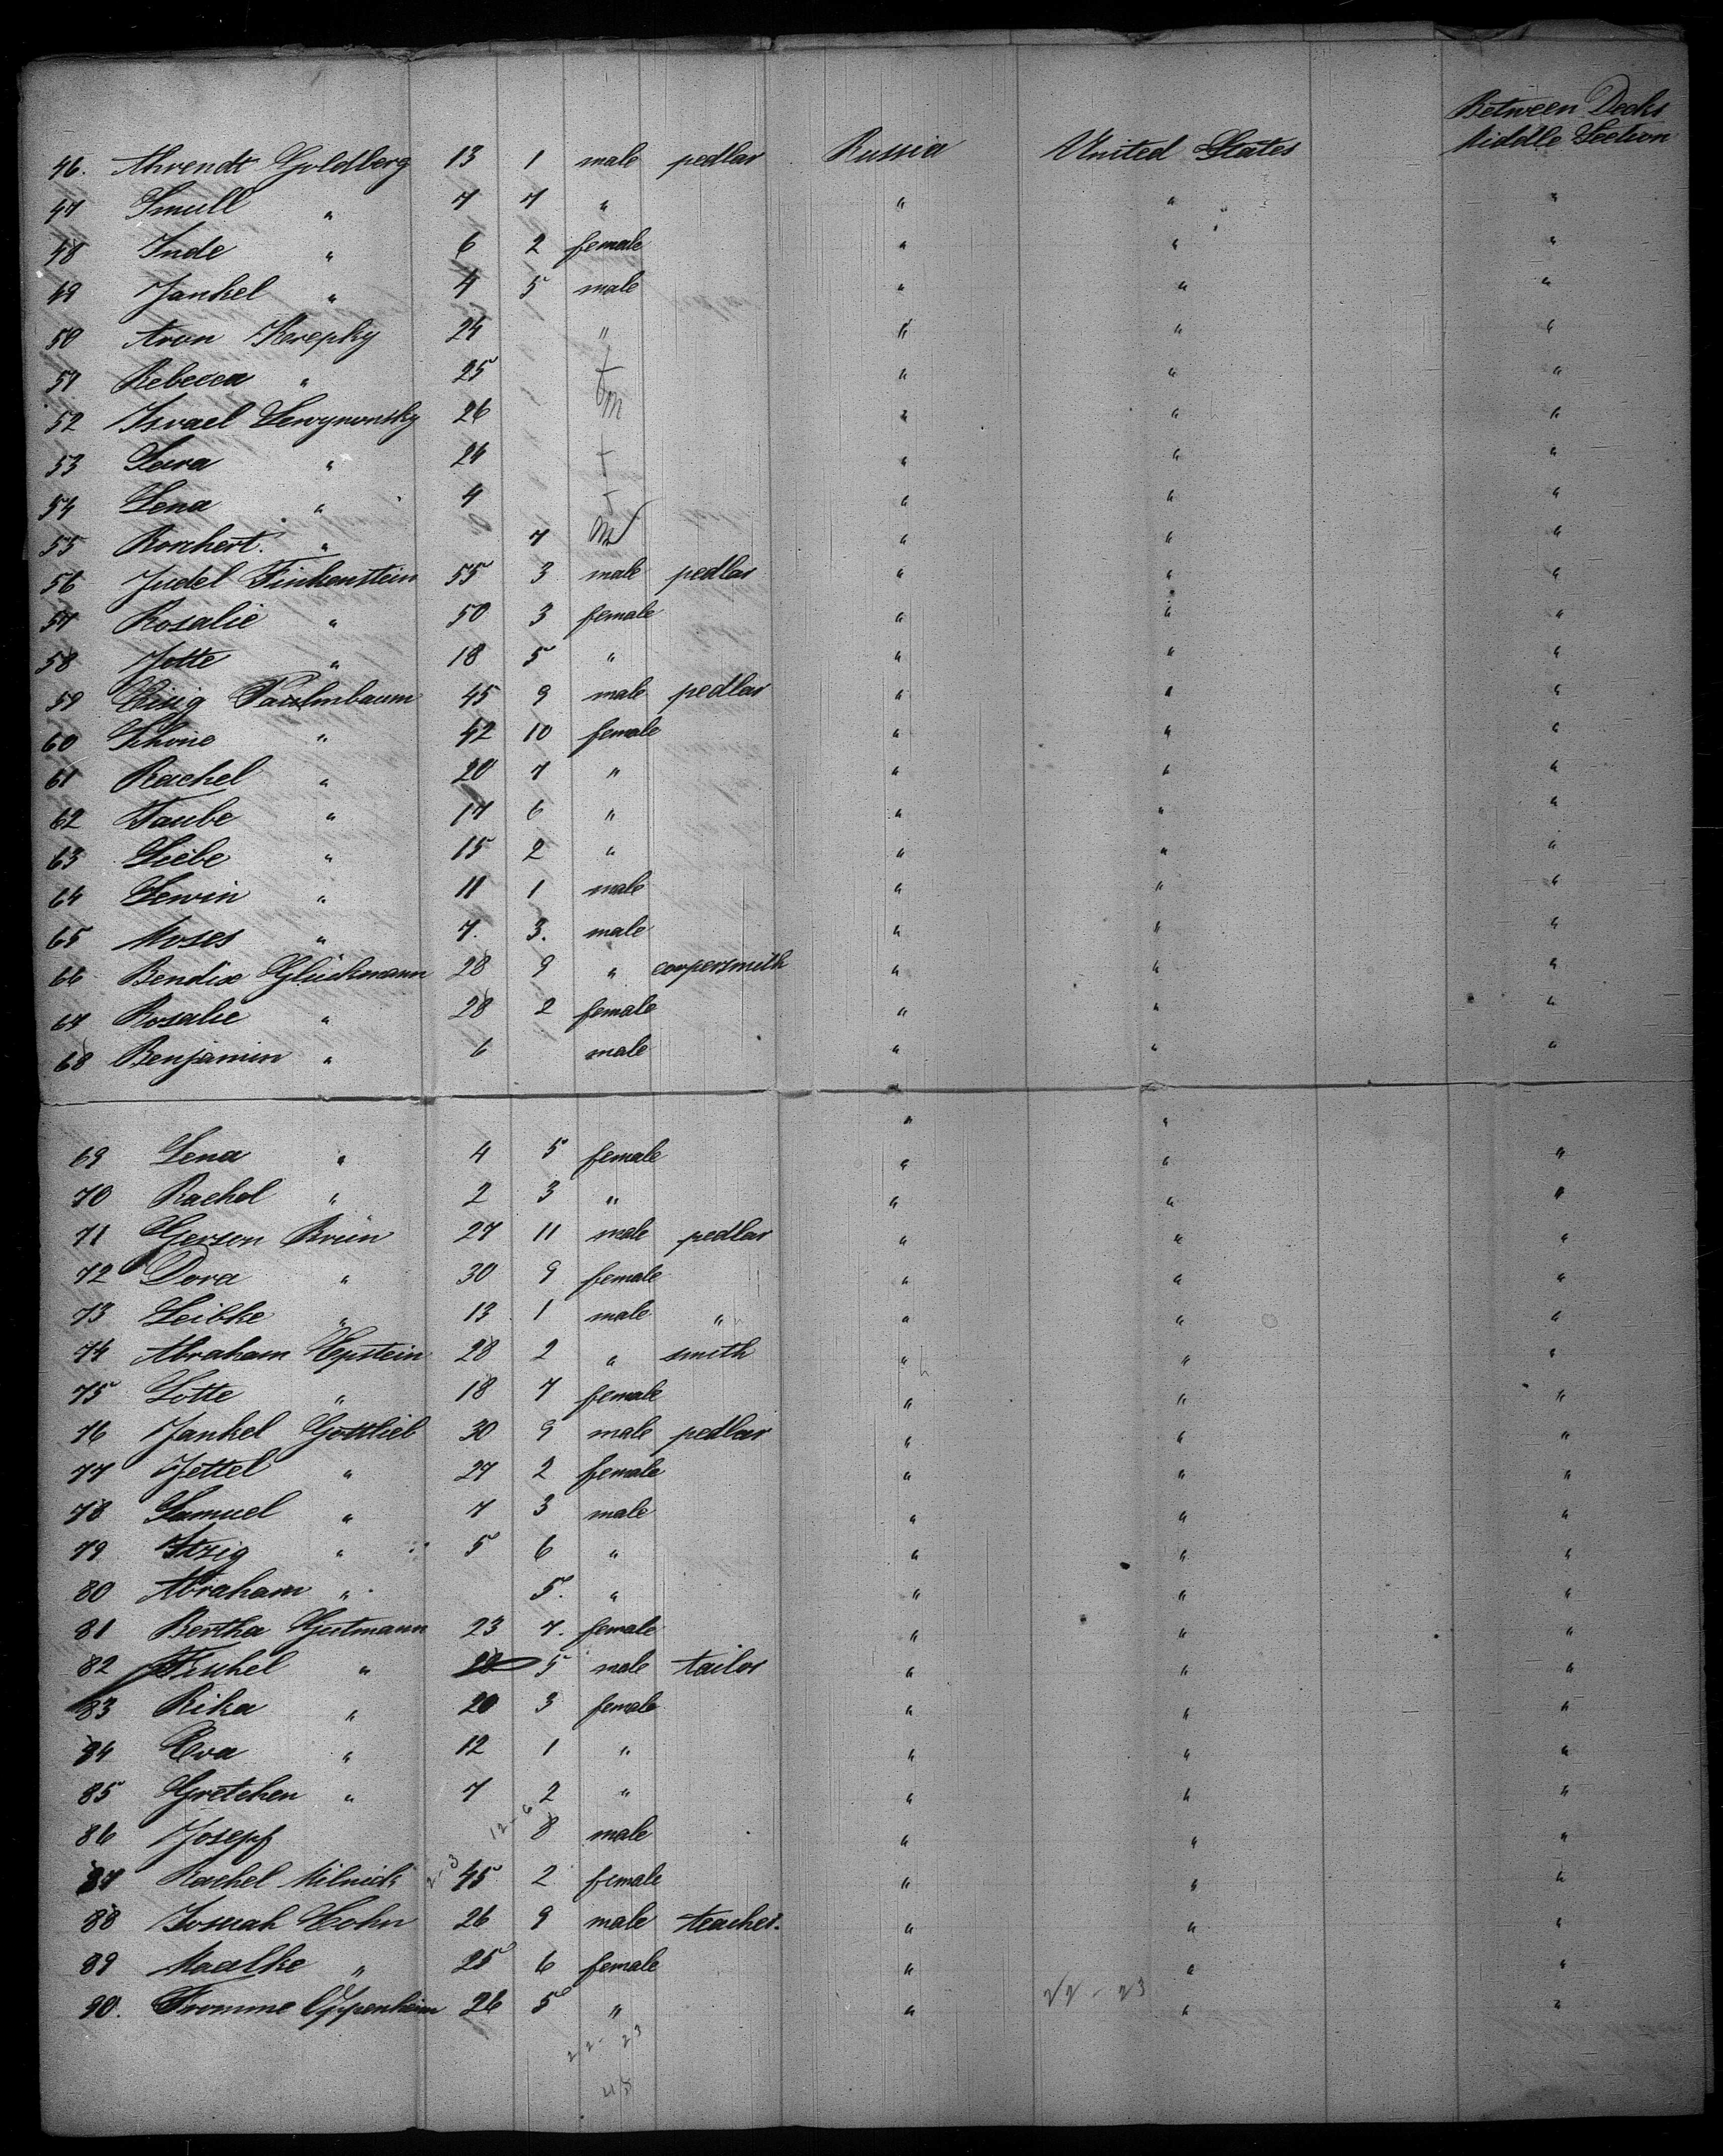 Between Decks
46. Ahrendt Goldberg 13 1 male pedlar Russia United States Middle Section
47 Smull " 7 7 " " " "
48 Inde " 6 2 female " " "
49 Jankel " 4 5 male " " "
50 Aron Kerepky 24 " " " "
51 Rebecca " 25 f " " "
52 Israel Lewynonsky 26 m " " "
53 Sara " 24 f " " "
54 Lena " 4 f " " "
55 Borchert " 7 m " " "
56 Judel Finkenstein 55 3 male pedlar " " "
57 Rosalie " 50 3 female " " "
58 Jette " 18 5 " " " "
59 Eisig 45 9 male pedlar " " "
60 Schöne " 42 10 female " " "
61 Rachel " 20 7 " " " "
62 Taube " 17 6 " " " "
63 Liebe " 15 2 " " " "
64 Lewin " 11 1 male " " "
65 Moses " 7. 3. male " " "
66 Bendix Glückmann 28 9 " coopersmith " " "
67 Rosalie " 28 2 female " " "
68 Benjamin " 6 male " " "
" "
69 Lena " 4 5 female " " "
70 Rachel " 2 3 " " " "
71 Gerson Brün 27 11 male pedlar " " "
72 Dora " 30 9 female " " "
73 Leibke " 13 1 male " " " "
74 Abraham Epstein 28 2 " smith " " "
75 Lotte " 18 7 female " " "
76 Jankel Gottlieb 30 9 male pedlar " " "
77 Jettel " 27 2 female " " "
78 Samuel " 7 3 male " " "
79 Itzig " 5 6 " " " "
80 Abraham " 5. " " " "
81 Bertha Gutmann 23 7. female " " "
82 Fischel " 20 5 male tailor " " "
83 Rika " 20 3 female " " "
84 Eva " 12 1 " " " "
85 Gretchen " 7 2 " " " "
86 Josepf 12-6 8 male " " "
87 Rachel Milnick 2-3 45 2 female " " "
88 Josuah Cohn 26 9 male teacher. " " "
89 Maalke " 25 6 female " " "
90. Fromme Oppenheim 26 5 " " " "
22-23
22-23
45